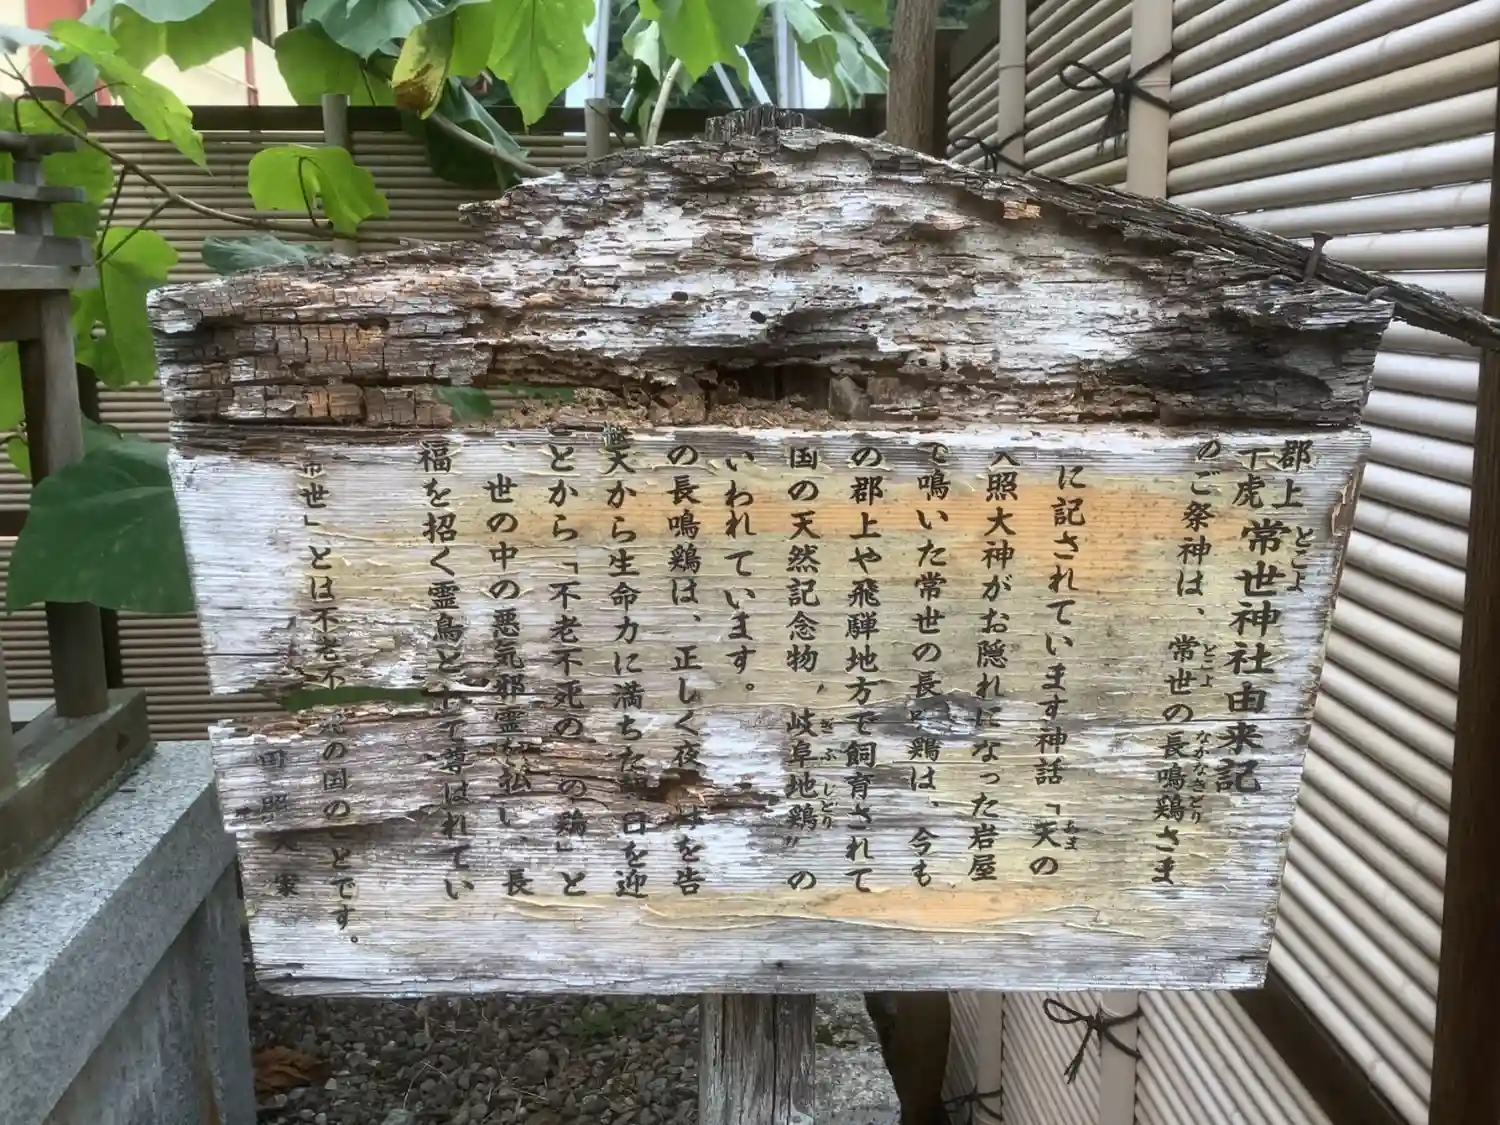 郡上
下虎 常世神社由来記
とこよ
のご祭神は、常世の長鳴鶏さま
とこよ ながなきどり
に記されています神話「天の
あま
照大神がお隠れになった岩屋
で鳴いた常世の長鳴鶏は、今も
の郡上や飛騨地方で飼育されて
国の天然記念物〝岐阜地鶏〟の
ぎふ じどり
いわれています。
の長鳴鶏は、正しく夜を告
天から生命力に満ちた日を迎
とから「不老不死の の鶏」と
世の中の悪気邪霊を払い、長
福を招く霊鳥として尊ばれてい
世」とは不老不死の国のことです。